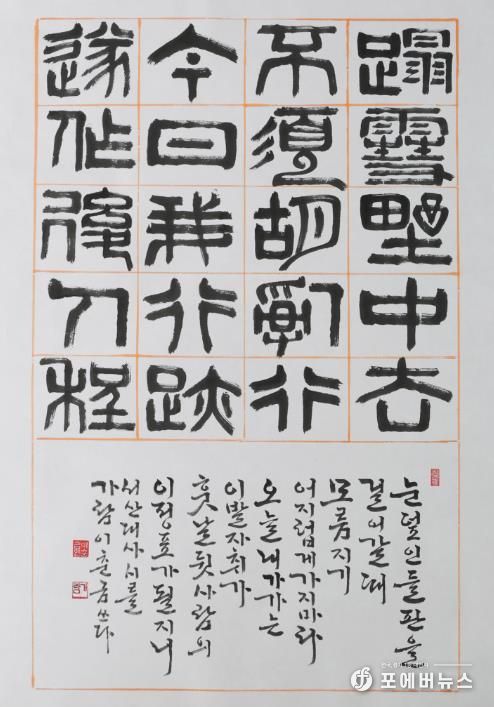 蹋雪野中去
不須胡亂行
今日我行跡
遂作後人程
눈덮인들판을
걸어갈때
모름지기
어지럽게가지마라
오늘내가가는
이발자취가
훗날뒷사람의
이정표가될지니
서산대사시를
가람이춘금쓰다
포에버뉴스